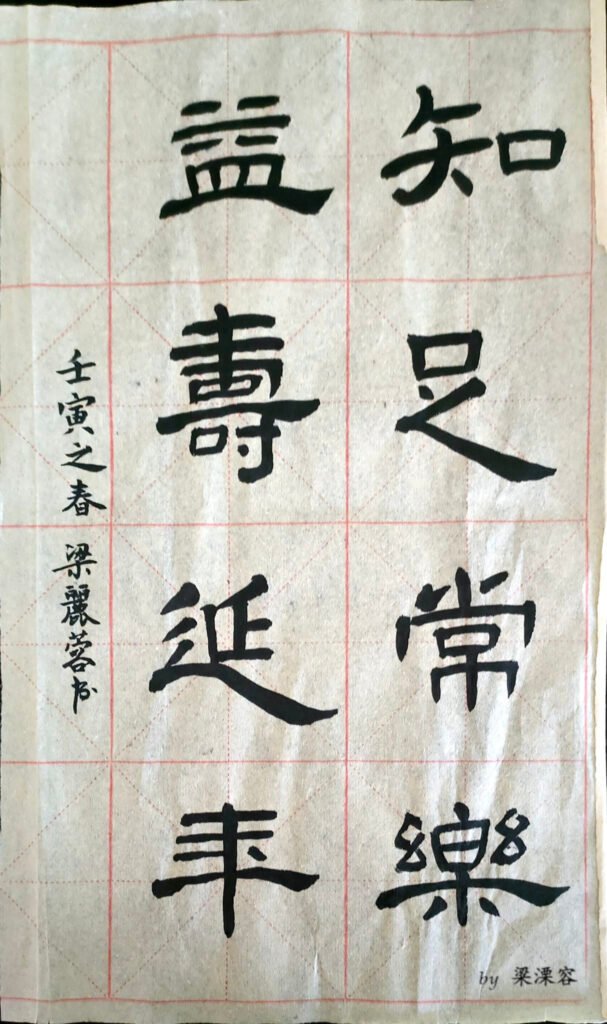 知足常樂
益壽延年
壬寅之春 梁麗蓉书
by 梁溧容